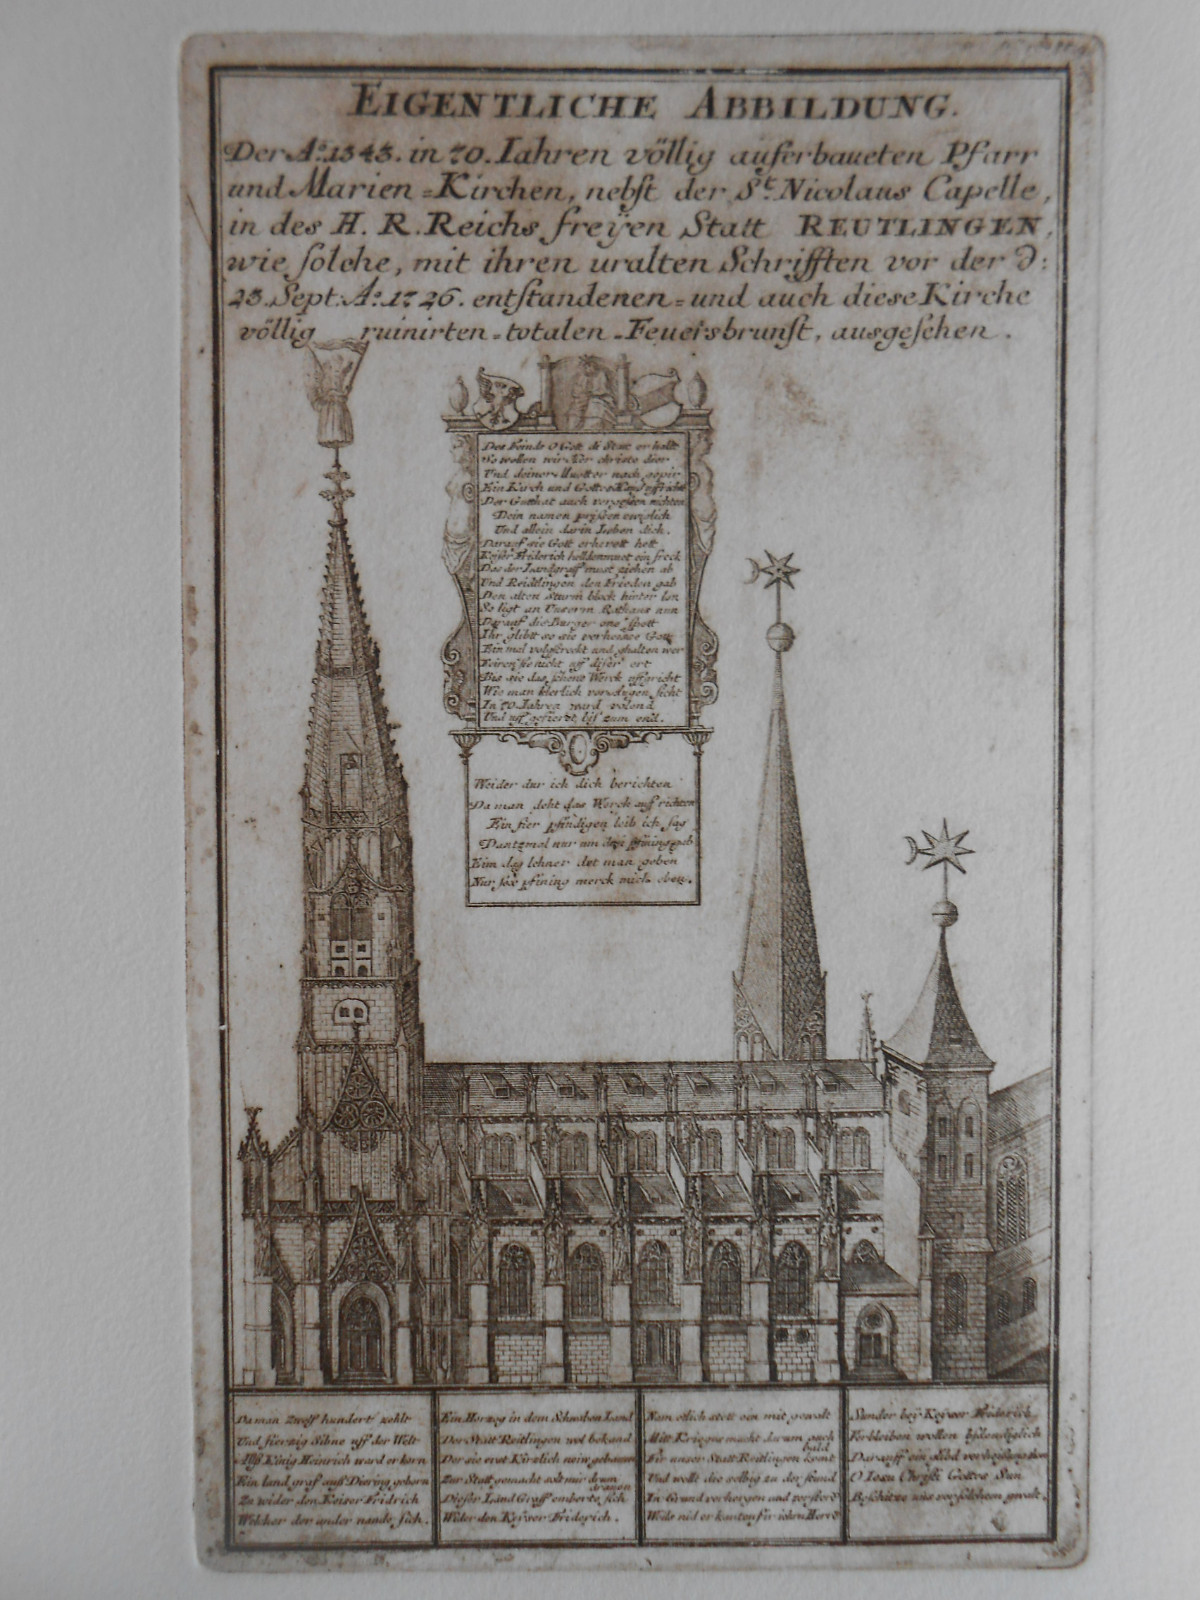 EIGENTLICHE ABBILDUNG.
Der Aº. 1343. in 70. Iahren völlig auferbaueten Pfarr
und Marien=Kirchen, nebst der St. Nicolaus Capelle,
in des H. R. Reichs freÿen Statt REUTLINGEN,
wie solche, mit ihren uralten Schrifften vor der d:
23. Sept. Aº. 1726. entstandenen=und auch diese Kirche
völlig ruinirten=totalen=Feuersbrunst, ausgesehen.
Des Feinds O Gott di Stat erhalt
So wellen wir Christe dier
Und deiner Muotter nach
Ein Kirch und Gottes
Der Gutthat auch vergessen nichten
Dein namen prÿsen ewiglich
Und allein darin Loben dich.
Darauf sie Gott erherett hett
Keiser Friderich helldenmuot ein freck
Das der Landgraff must ziehen ab
Und Reidtlingen den Frieden gab
Den alten Sturm block hinter lon
So ligt an Unserm Rathaus nun
Darauf die Burger one spott
Ihr glibtt so sie verheisse Gott
Ein mol volgstreckt und ghalten wer
Feiren sie nicht uff diser ort
Bis sie das schene Werck uffgricht
Wie man kierlich vor augen sicht
In 70. Jahren ward volend
Und uff gefiert, bis zum end.
Weider dur ich dich berichten
Da man deht das Werck auf richten
Ein fier pfindigen leib ich sag
Dantzmol nur um drÿ pfining gab
Eim dag lehner det man geben
Nur sex pfining merck mich eben.
Da man Zwelf hundert zehlt
Und fierzig Sibne uff der Welt
Alls König Heinrich ward erkorn
Ein land graf auß Diering geborn
Zu wider den Keiser Fridrich
Welcher der ander nande sich.
Ein Herzog in dem Schwaben Land
Der Statt Reitlingen wol bekand
Der sie erst Kirzlich new gebauwen
Zur Statt gemacht solt mir drum
Dieser Land Graff emberte sich
Wider den Keÿser Friderich.
Nam etlich stett ein mit gewalt
Mitt Kriegs macht darum auch
bald
Fir unser Statt Reitlingen komt
Und wollt die selbig zu der stund
In Grund verhergen und zersterd
Weils nid erkanten fir ihrn Herrn
Sunder beÿ Keÿser Friderich
Verbleiben wollen bstendiglich
Darauff ein glibd verheissen thon
O Iesu Christ Gottes Sun
Beschitze uns vor solchten gwalt.